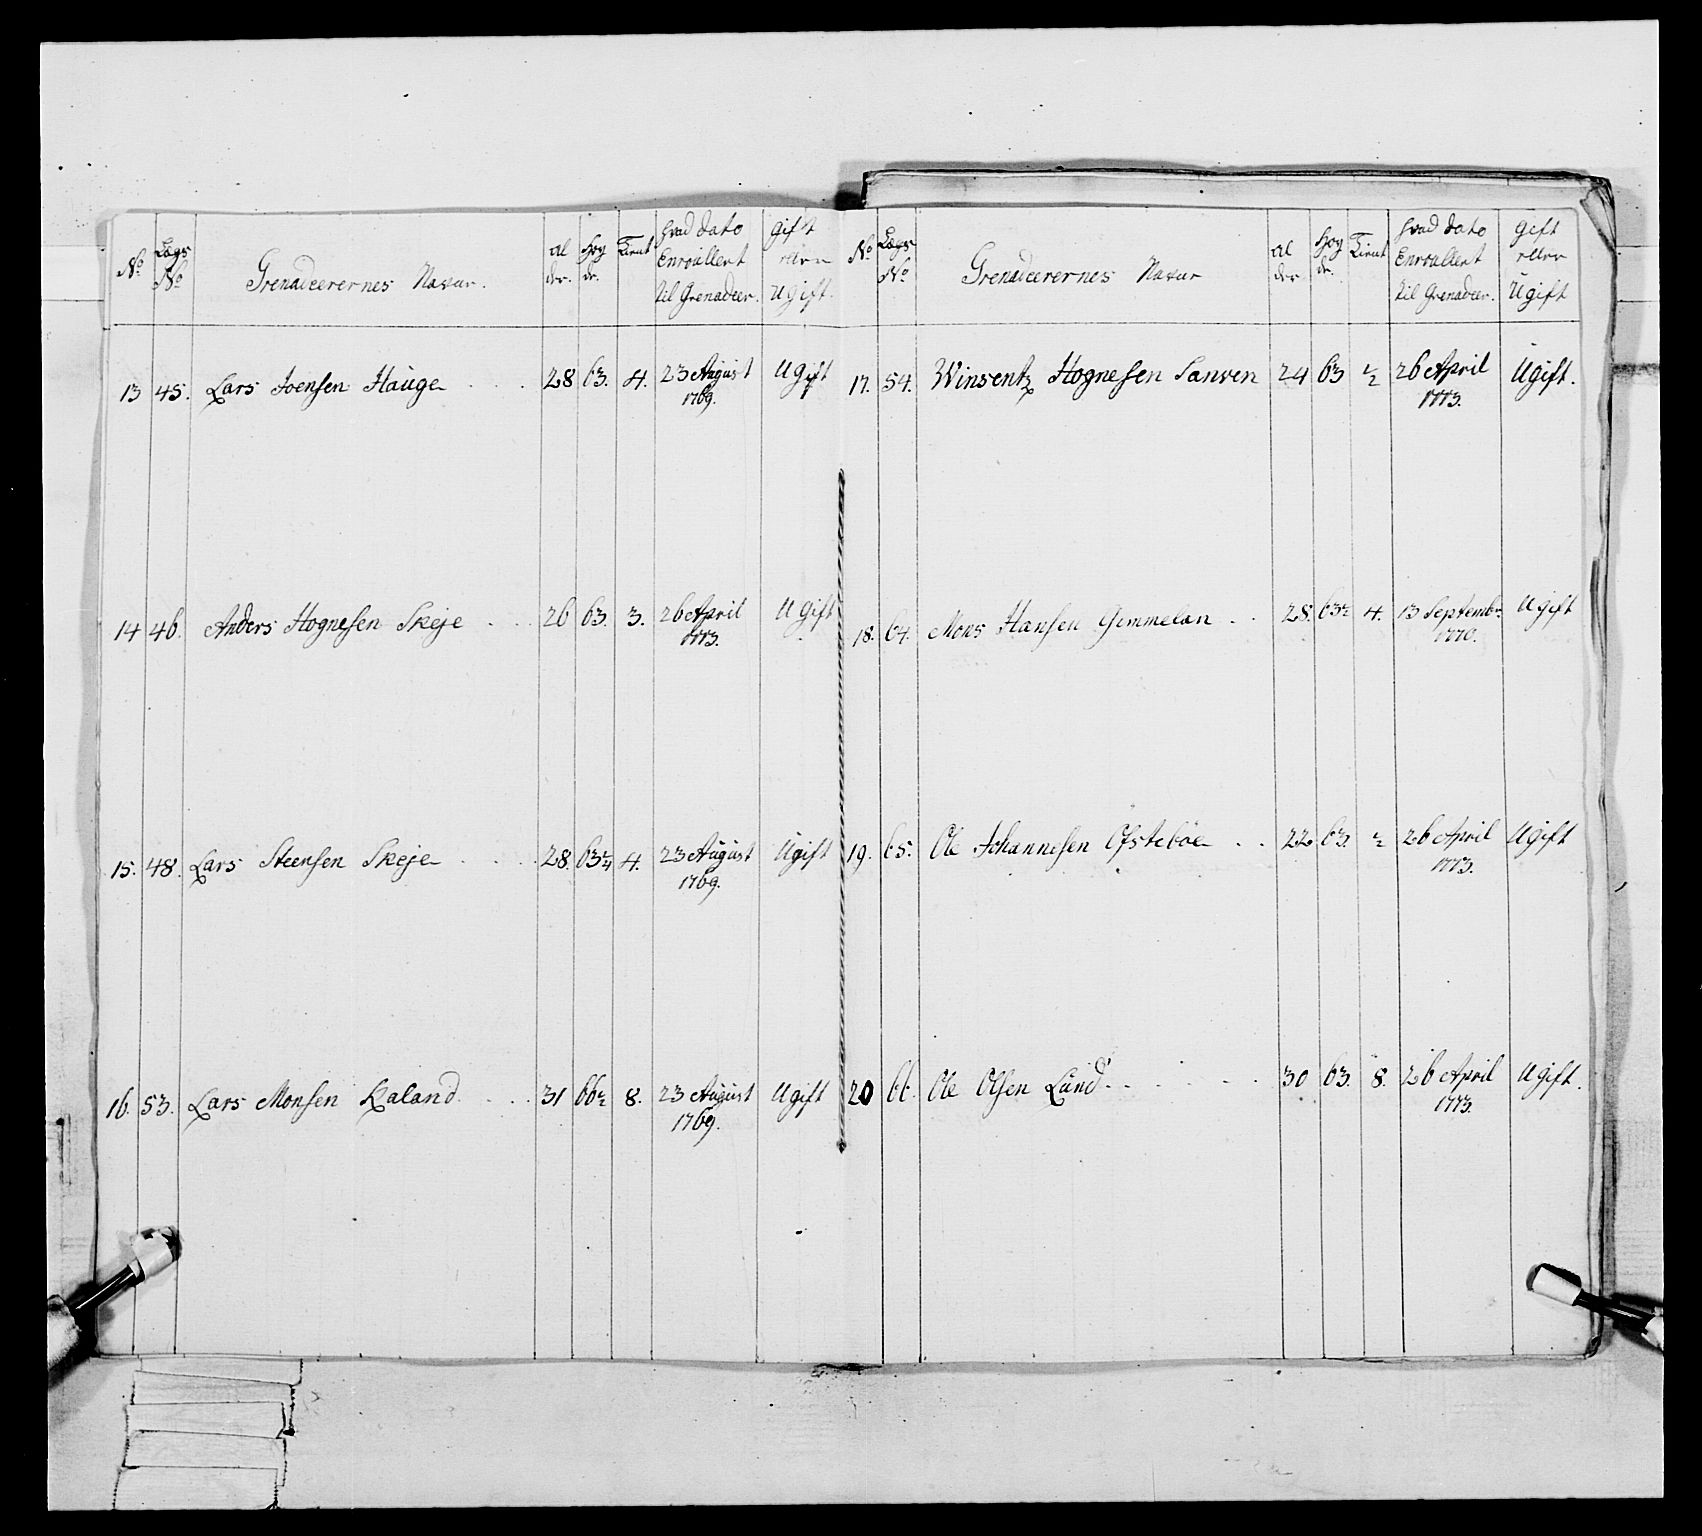 No Lægs No Grenadeerernes Navne. Al der. Høy de. Tient hvad dato Enroullert til Grenadeer. gift eller Ugift.
13 45. Lars Joensen Hauge 28 63. 4. 23 August 1769. Ugift
14 46. Anders Hognesen Skeje 26 63. 3. 26 April 1773. Ugift
15. 48. Lars Steensen Skeje 28. 63½ 4. 23 August 1769. Ugift
16. 53. Lars Monsen Kaland 31 66½ 8. 23 August 1769. Ugift
No Lægs No Grenadeerernes Navne Al der Høy de. Tient hvad dato Enroullert til Grenadeer. gift eller Ugift
17. 54. Winsentz Hognesen Sanven 24 63 ½ 26 April 1773. Ugift.
18. 64. Mons Hansen Gimmelan 28. 63½ 4. 13 Septembr. 1770. Ugift
19. 65. Ole Johannesen Ofsteböe 22 63. ½ 26 April 1773. Ugift
20 66. Ole Olsen Lund 30 63. 8. 26 April 1773. Ugift.